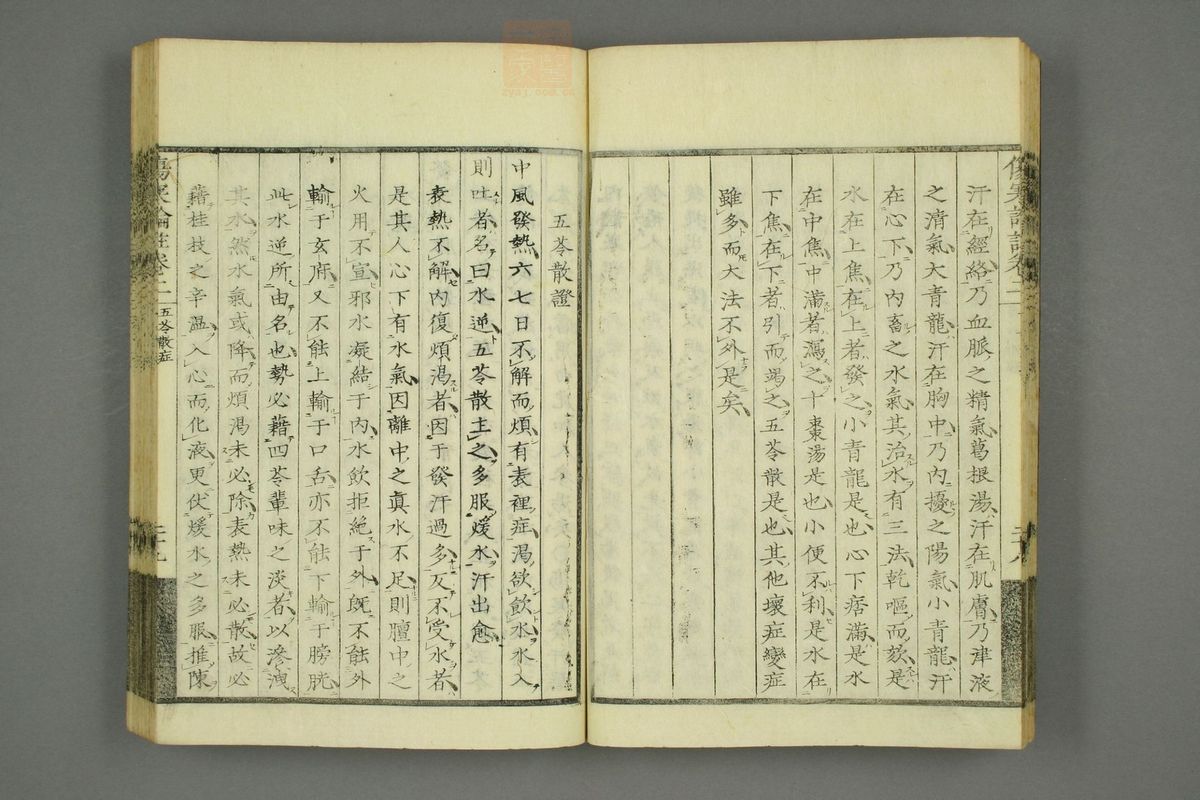 汗在經絡乃血脈之精氣葛根湯汗在肌膚乃津液
之清氣大青龍汗在胸中乃内擾之陽氣小青龍汗
在心下乃内畜之水氣其治水有三法乾嘔而欬是
水在上焦在上者發之小青龍是也心下痞滿是水
在中焦中滿者瀉之十棗湯是也小便不利是水在
下焦在下者引而竭之五苓散是也其他壞症變症
雖多而大法不外是矣
五苓散證
中風發熱六七日不解而煩有表裡症渴欲飲水水入
則吐者名曰水逆五苓散主之多服煖水汗出愈
表熱不解内復煩渴者因于發汗過多反不受水者
是其人心下有水氣因離中之眞水不足則膻中之
火用不宣邪水凝結于内水飲拒絕于外既不能外
輸于玄府又不能上輸于口舌亦不能下輸于膀胱
此水逆所由名也勢必藉四苓輩味之淡者以滲洩
其水然水氣或降而煩渴未必除表熱未必散故必
藉桂枝之辛温入心而化液更伏煖水之多服推陳
傷寒論註卷二 五苓散症